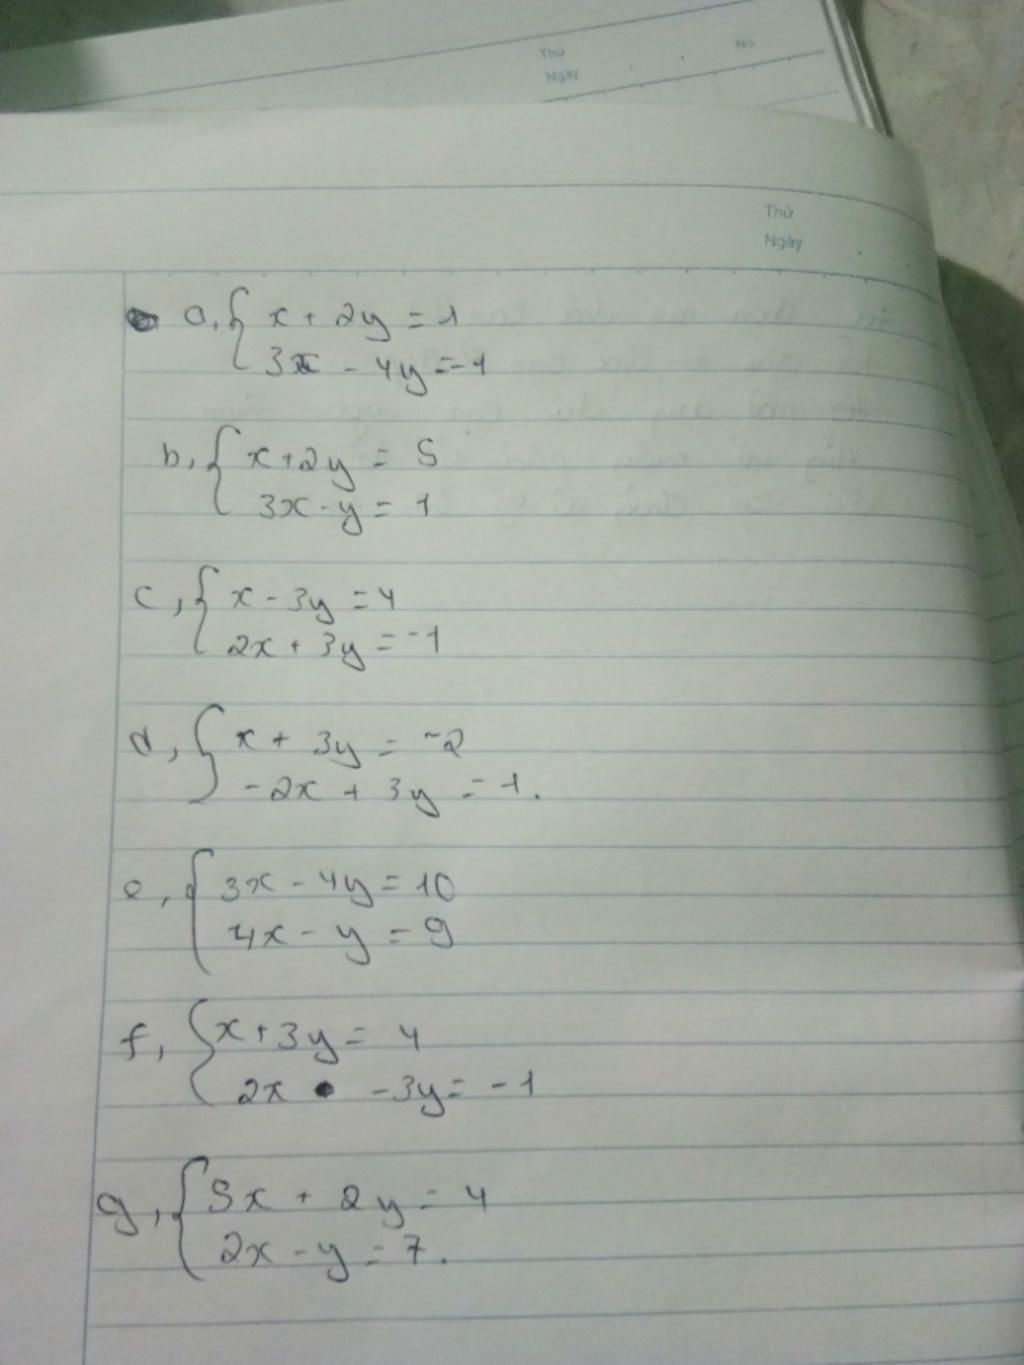 Thứ
No
Ngày
Thứ
Ngày
a, { x + 2y = 1
3x - 4y = -1
b, { x + 2y = 5
3x - y = 1
c, { x - 3y = 4
2x + 3y = -1
d, { x + 3y = -2
-2x + 3y = 1.
e, { 3x - 4y = 10
4x - y = 9
f, { x + 3y = 4
2x - 3y = -1
g, { 5x + 2y = 4
2x - y = 7.